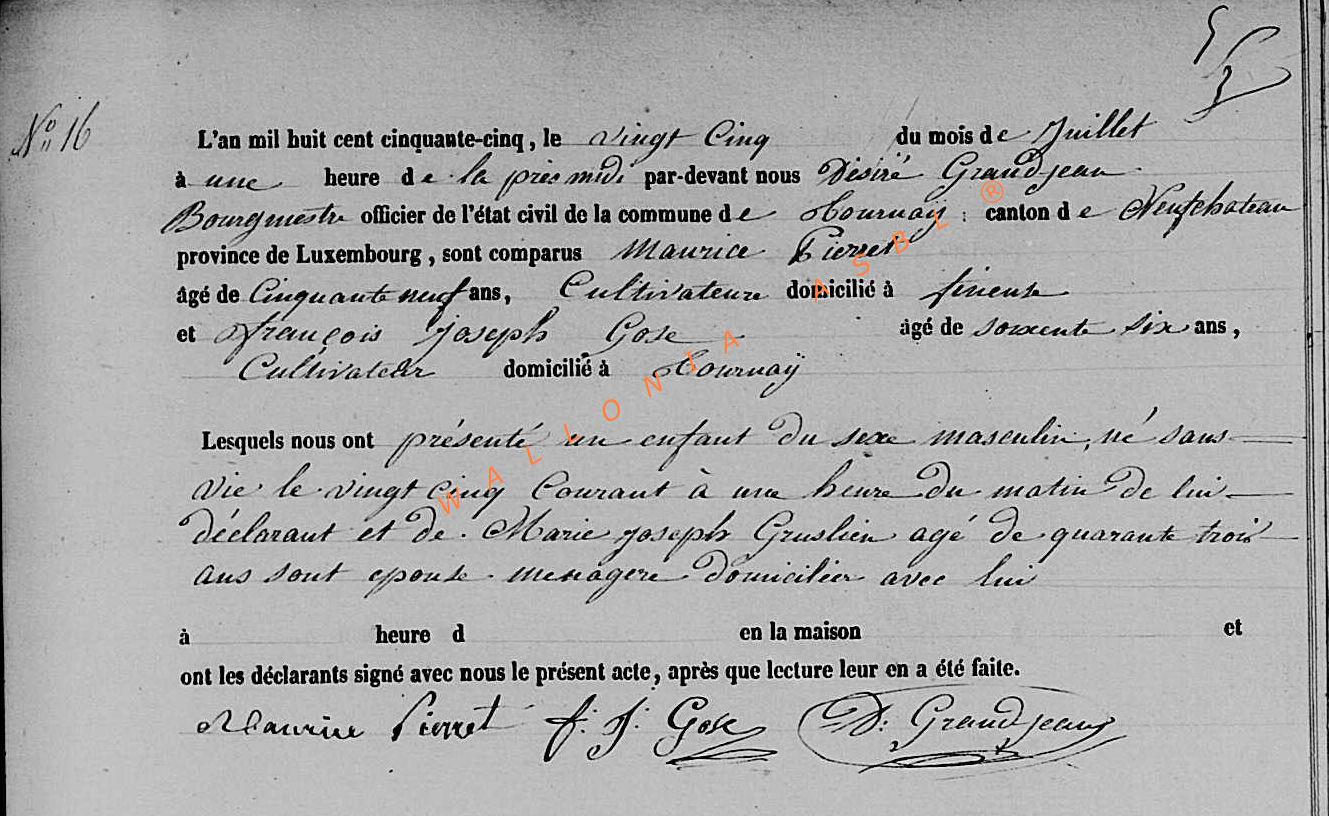 N° 16
L'an mil huit cent cinquante-cinq, le vingt Cinq du mois de Juillet
à une heure de la près midi par-devant nous Désiré Grandjean
Bourgmestre officier de l'état civil de la commune de Tournay : canton de Neufchateau
province de Luxembourg, sont comparus Maurice Pierret
âgé de Cinquante neuf ans, Cultivateur domicilié à
et françois joseph Gose âgé de soixante six ans,
Cultivateur domicilié à Tournaÿ
Lesquels nous ont présenté un enfant du sexe masculin, né sans
vie le vingt cinq Courant à une heure du matin de lui
déclarant et de Marie joseph Gruslien agé de quarante trois
ans sont epouse menagere domiciliée avec lui
à heure d en la maison et
ont les déclarants signé avec nous le présent acte, après que lecture leur en a été faite.
Maurice Pierret f. J. Gose D. Grandjean
WALLONIA ASBL ®